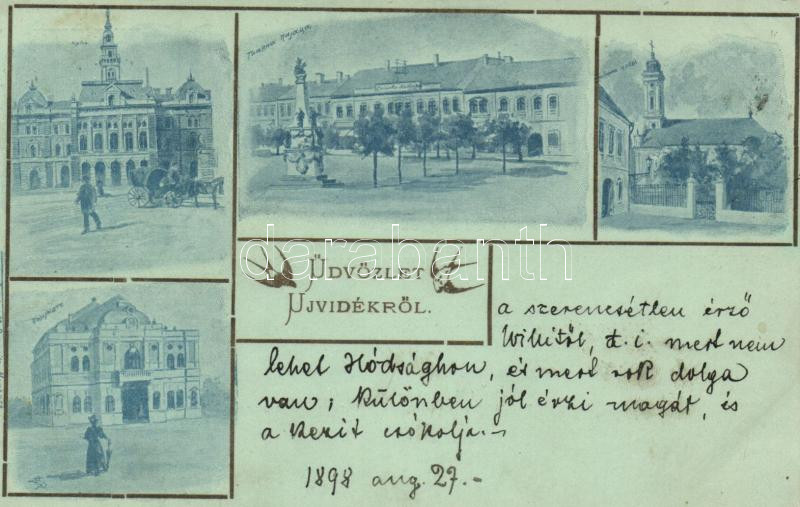 ÜDVÖZLET
UJVIDÉKRŐL.
a szerencsétlen érző
Wikitől, t. i. mert nem
lehet Hódsághon, és mert sok dolga
van; különben jól érzi magát, és
a kezit csókolja.-
1898 aug. 27.-
darabanth